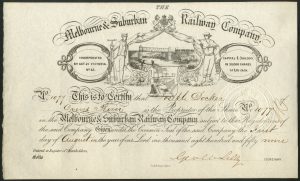 THE
Melbourne & Suburban Railway Company.
INCORPORATED
BY ACT OF VICTORIA
CAPITAL £
IN 50,000 SHARES
No. 1077 This is to Certify that Joseph Docker
of River is the Proprietor of the Share No. 1077
in the Melbourne & Suburban Railway Company subject to the Regulations of
the said Company Given under the Common Seal of the said Company the First
day of August in the year of our Lord one thousand eight hundred and fifty nine